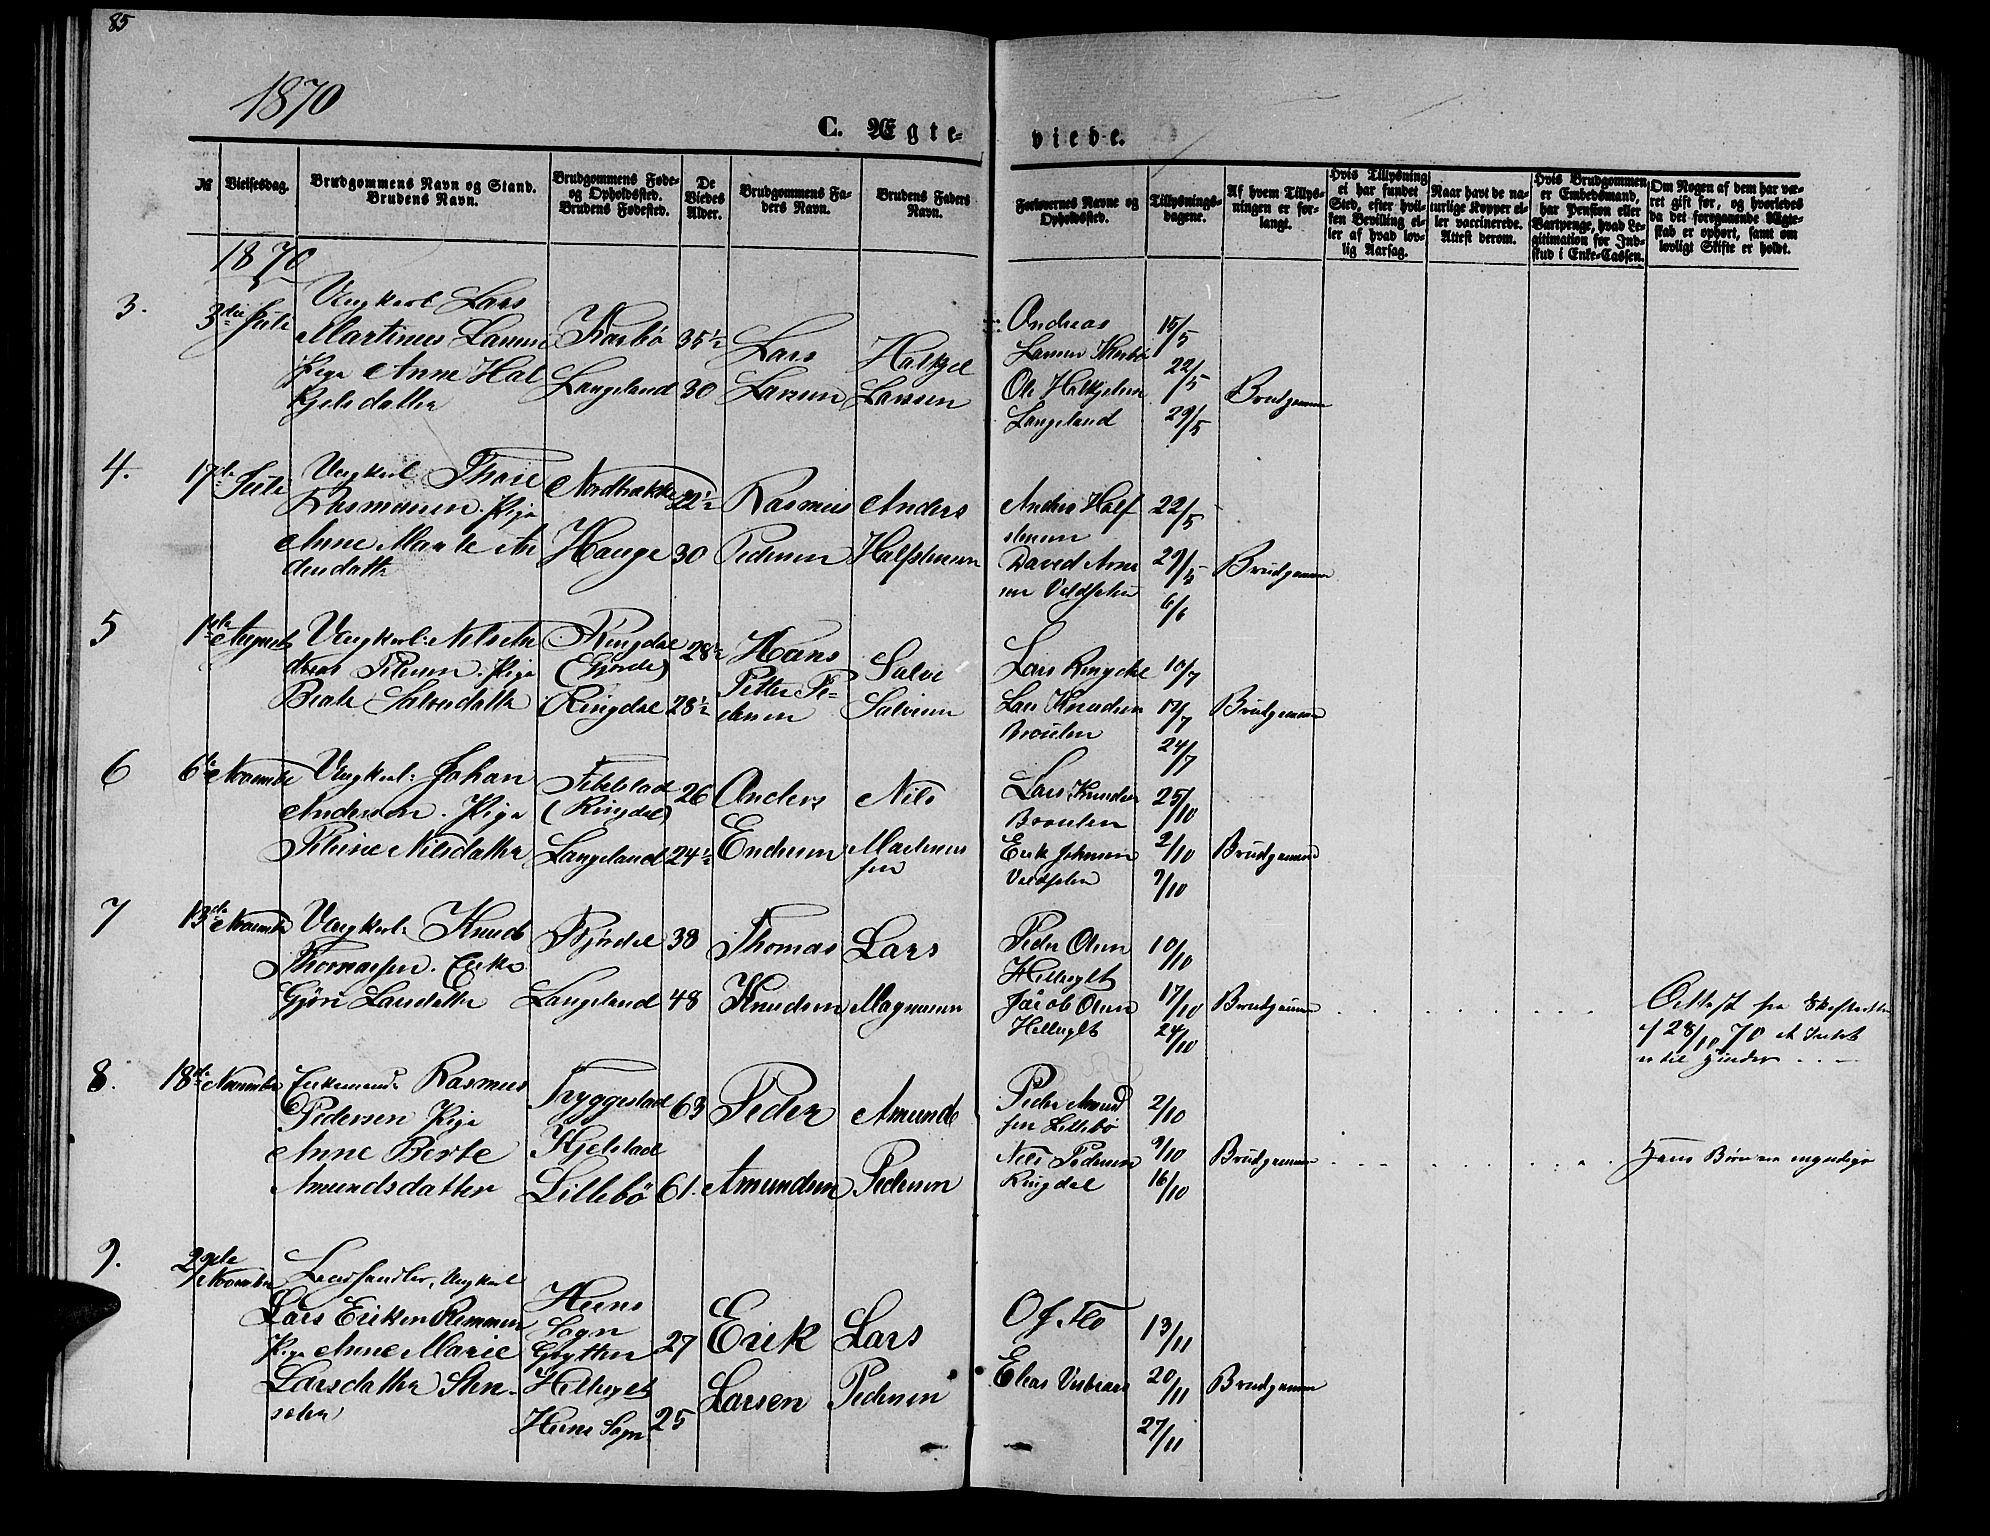 85
1870
C. Ægte-
viede.
№
Vielsesdag.
Brudgommens Navn og Stand.
Brudens Navn.
Brudgommens Føde-
og Opholdssted.
Brudens Fødested.
De
Viedes
Alder.
Brudgommens Fa-
ders Navn.
Brudens Faders
Navn.
Forlovernes Navne og
Opholdssted.
Tillysnings-
dagene.
Af hvem Tillys-
ningen er for-
langt.
Hvis Tillysning
ei har fundet
Sted, efter hvil-
ken Bevilling el-
ler af hvad lov-
lig Aarsag.
Naar havt de na-
turlige Kopper el-
ler vaccinerede.
Attest derom.
Hvis Brudgommen
er Embedsmand,
har Pension eller
Vartpenge, hvad Le-
gitimation for Ind-
skud i Enke-Cassen.
Om Nogen af dem har væ-
ret gift før, og hvorledes
da det foregaaende Ægte-
skab er ophørt, samt om
lovligt Skifte er holdt.
1870
3.
3die Juli
Ungkarl Lars
Martinus Larsen
Pige Anne Hal
kjelsdatter
Karbø
Langeland
35½
30
Lars
Larsen
Halkjel
Larsen
Andreas
Larsen
Ole Halkjelsen
Langeland
15/5
22/5
29/5
Brudgommen
4.
17de Juli
Ungkarl
Rasmussen. Pige
Anne Marte An
dersdatter
Hauge
22½
30
Rasmus
Pedersen
Anders
Halfstensen
Anders Half
stensen
David
22/5
29/5
6/6
Brudgommen
5
1ste August
Ungkarl: Nils An
dreas Petersen. Pige
Beate Salvesdatter
Ringdal
(Gjerde)
Ringdal
28½
28½
Hans
Petter Pe-
dersen
Salve
Salvesen
Lars Ringdal
Lars Knudsen
Brouten
10/7
17/7
24/7
Brudgommen
6
6te November
Ungkarl: Johan
Anderson. Pige
Nilsdatter
(Ringdal)
Langeland
26
24½
Anders
Endresen
Nils
Martinus
sen
Lars Knudsen
Brouten
Erik Johnsen
25/10
2/10
9/10
Brudgommen
7
13de November
Ungkarl: Knud
Thomassen. Enke
Gjøri Larsdatter
Bjørdal
Langeland
38
48
Thomas
Knudsen
Lars
Magnussen
Peder Olsen
Hellesylt
Jacob Olsen
Hellesylt
10/10
17/10
24/10
Brudgommen
Attest fra Skifteretten
af 28/10 70 at Intet
er til Hinder
8.
18de November
Enkemand: Rasmus
Pedersen Pige
Anne Berte
Amundsdatter
Tryggestad
Hjelstad
Lillebø
63
61.
Peder
Amundsen
Amund
Pedersen
Peder Amund
sen Lillebø
Nils Pedersen
Ringdal
2/10
9/10
16/10
Brudgommen
Hans Børn ere myndige
9.
29de
November
Landhandler, Ungkarl
Lars Eriksen Remmen
Pige Anne Marie
Larsdatter Sten-
Heens
Sogn
Grytten
Hellesylt
Heens Sogn
27
25
Erik
Larsen
Lars
Pedersen
Of. Flo
Elias
13/11
20/11
27/11
Brudgommen